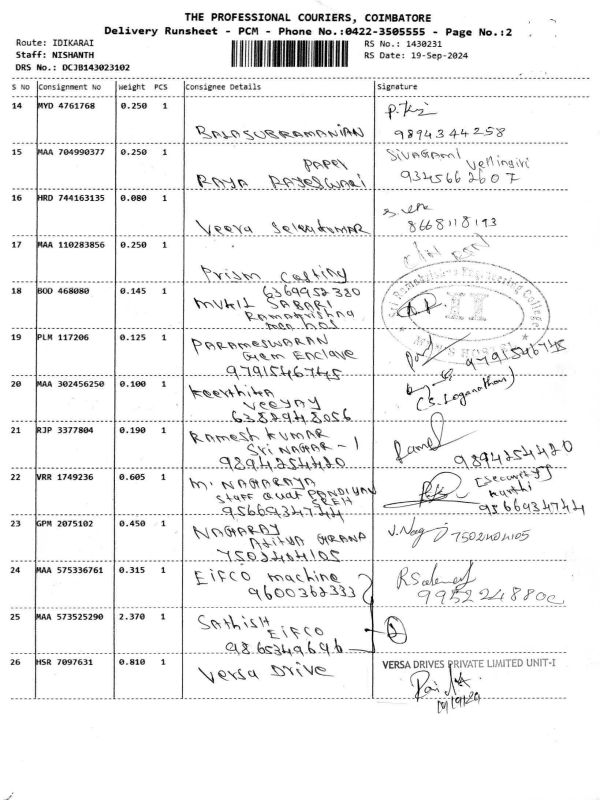 THE PROFESSIONAL COURIERS, COIMBATORE
Delivery Runsheet - PCM - Phone No.:0422-3505555 - Page No.:2
Route: IDIKARAI
RS No.: 1430231
Staff: NISHANTH
RS Date: 19-Sep-2024
DRS No.: DCJB143023102
S No Consignment No Weight PCS Consignee Details Signature
14 MYD 4761768 0.250 1
BALASUBRAMANIAN 9894344258
15 MAA 704990377 0.250 1 PAPPY SIVAGAMI Vellingiri
RAYA RAJESWARI 9345662607
16 HRD 744163135 0.080 1
Veera Selvakumar 8668118193
17 MAA 110283856 0.250 1
Prism Casting
18 BOD 468080 0.145 1 6369952380
MUKIL SABARI
Ramakrishna
men hos
Sri Ramakrishna Engineering College
19 PLM 117206 0.125 1 PARAMESWARAN
Gem Enclave
9791546745 9791546745
20 MAA 302456250 0.100 1 Keerthika
(S. Loganathan)
6382948056
21 RJP 3377804 0.190 1 RAMESH KUMAR
Sri NAGAR - 1
9894254420 9894254420
22 VRR 1749236 0.605 1 M. NAGARAJA [Security]
Staff Quat PANDIYAN
9566934744 9566934744
23 GPM 2075102 0.450 1 NAGARAJ V. Nagaj 7502404105
7502404105
24 MAA 575336761 0.315 1 EIFCO machine
9600362333
25 MAA 573525290 2.370 1 SATHISH
EIFCO 2
9865349696
26 HSR 7097631 0.810 1 Versa Drive VERSA DRIVES PRIVATE LIMITED UNIT-I